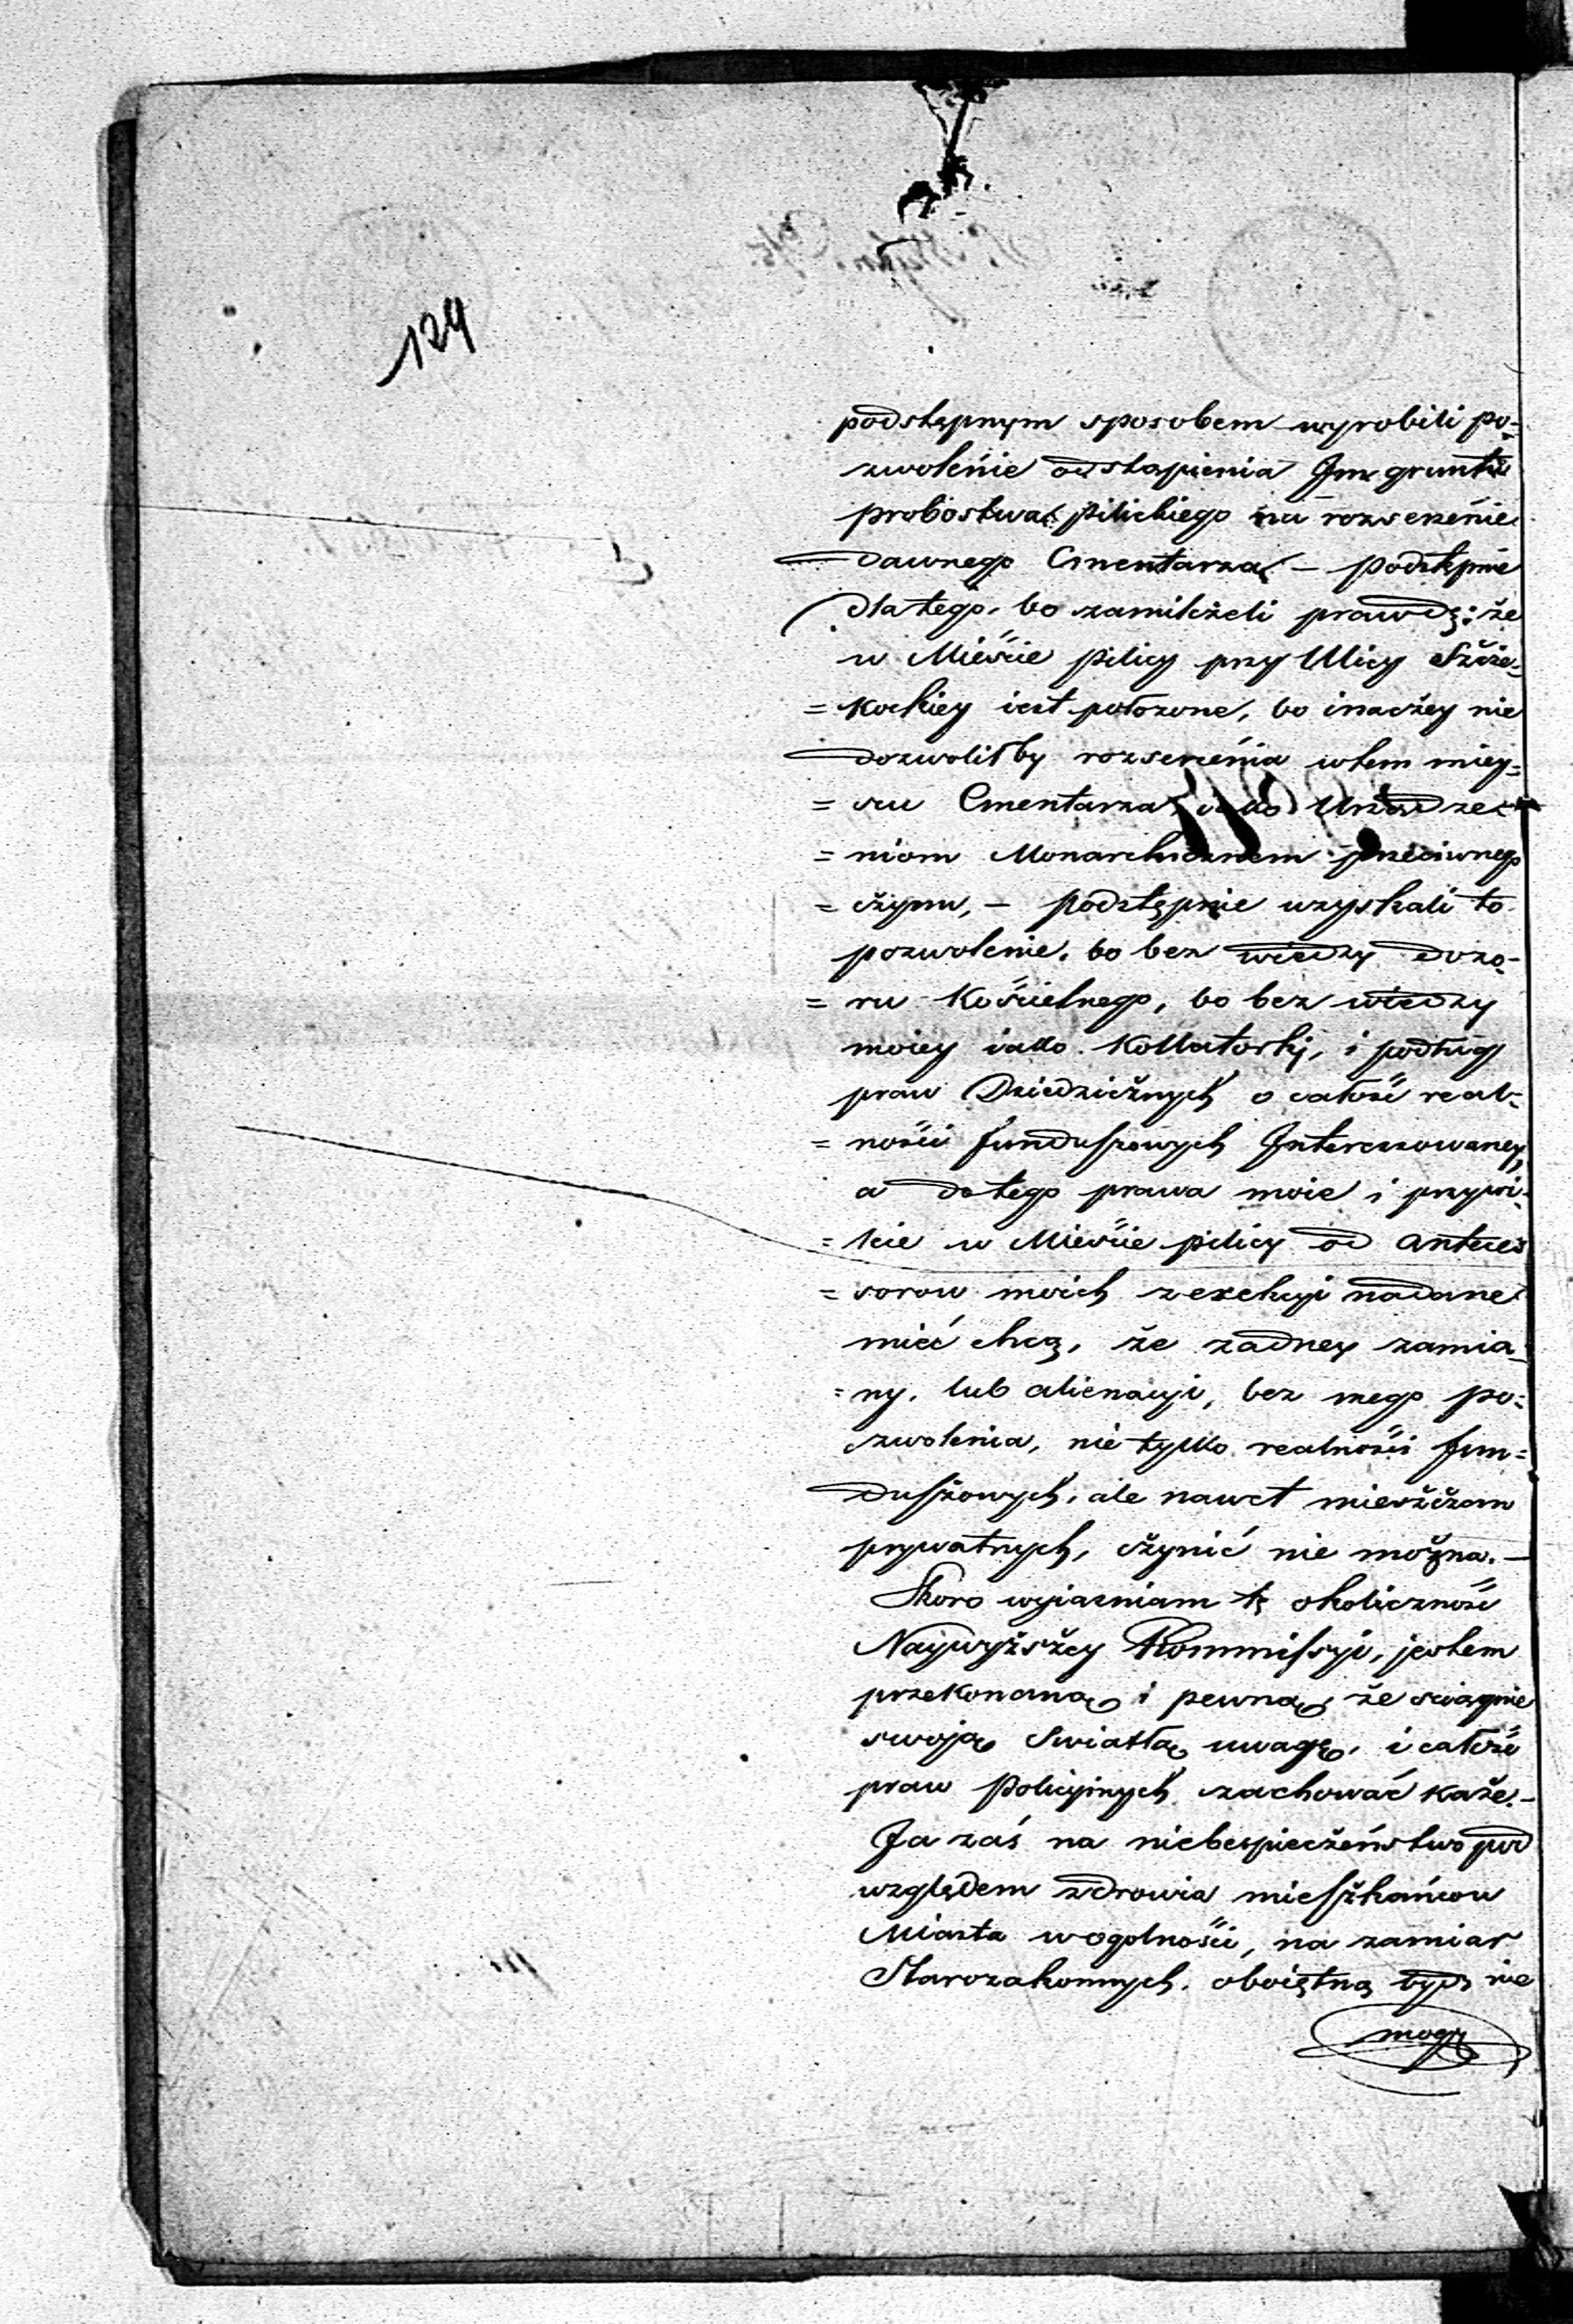 124
podstępnym sposobem wyrobili po-
zwolenie odstąpienia Im gruntu
probostwa pilickiego na rozserzenie
dawnego Cmentarza, – podstępnie
dla tego, bo zamilczeli prawdę; że
w Mieście pilicy przy Ulicy Szcze-
=kockiey iest położone, bo inaczey nie
dozwolił by rozserzenia w tem miey-
=scu Cmentarza, iako Urządze-
=niom Monarchicznem przeciwnego
=czynu, – podstępnie uzyskali to
pozwolenie, bo bez wiedzy dozo-
=ru Kościelnego, bo bez wiedzy
moiey iako Kollatorki, i podług
praw Dziedzicznych o całość real-
=ności funduszowych Interesowaney,
a do tego prawa moie i przywi-
=leie w Mieście pilicy od anteces
=sorow moich z erekcyi nadane
mieć chcą, że żadney zamia-
=ny, lub alienacyi, bez mego po-
zwolenia, nie tylko realności fun=
duszowych, ale nawet mieszczan
prywatnych, czynić nie można. –
Skoro wyiaśniam tę okoliczność
Naywyższey Kommissyi, jestem
przekonaną i pewną, że sciągnie
swoją Swiatłą uwagę, i całość
praw Policyinych zachować każe. –
Ja zaś na niebespieczeństwo pod
względem zdrowia mieszkańcow
Miasta w ogolności, na zamiar
Starozakonnych, oboiętną bydź nie
mogę